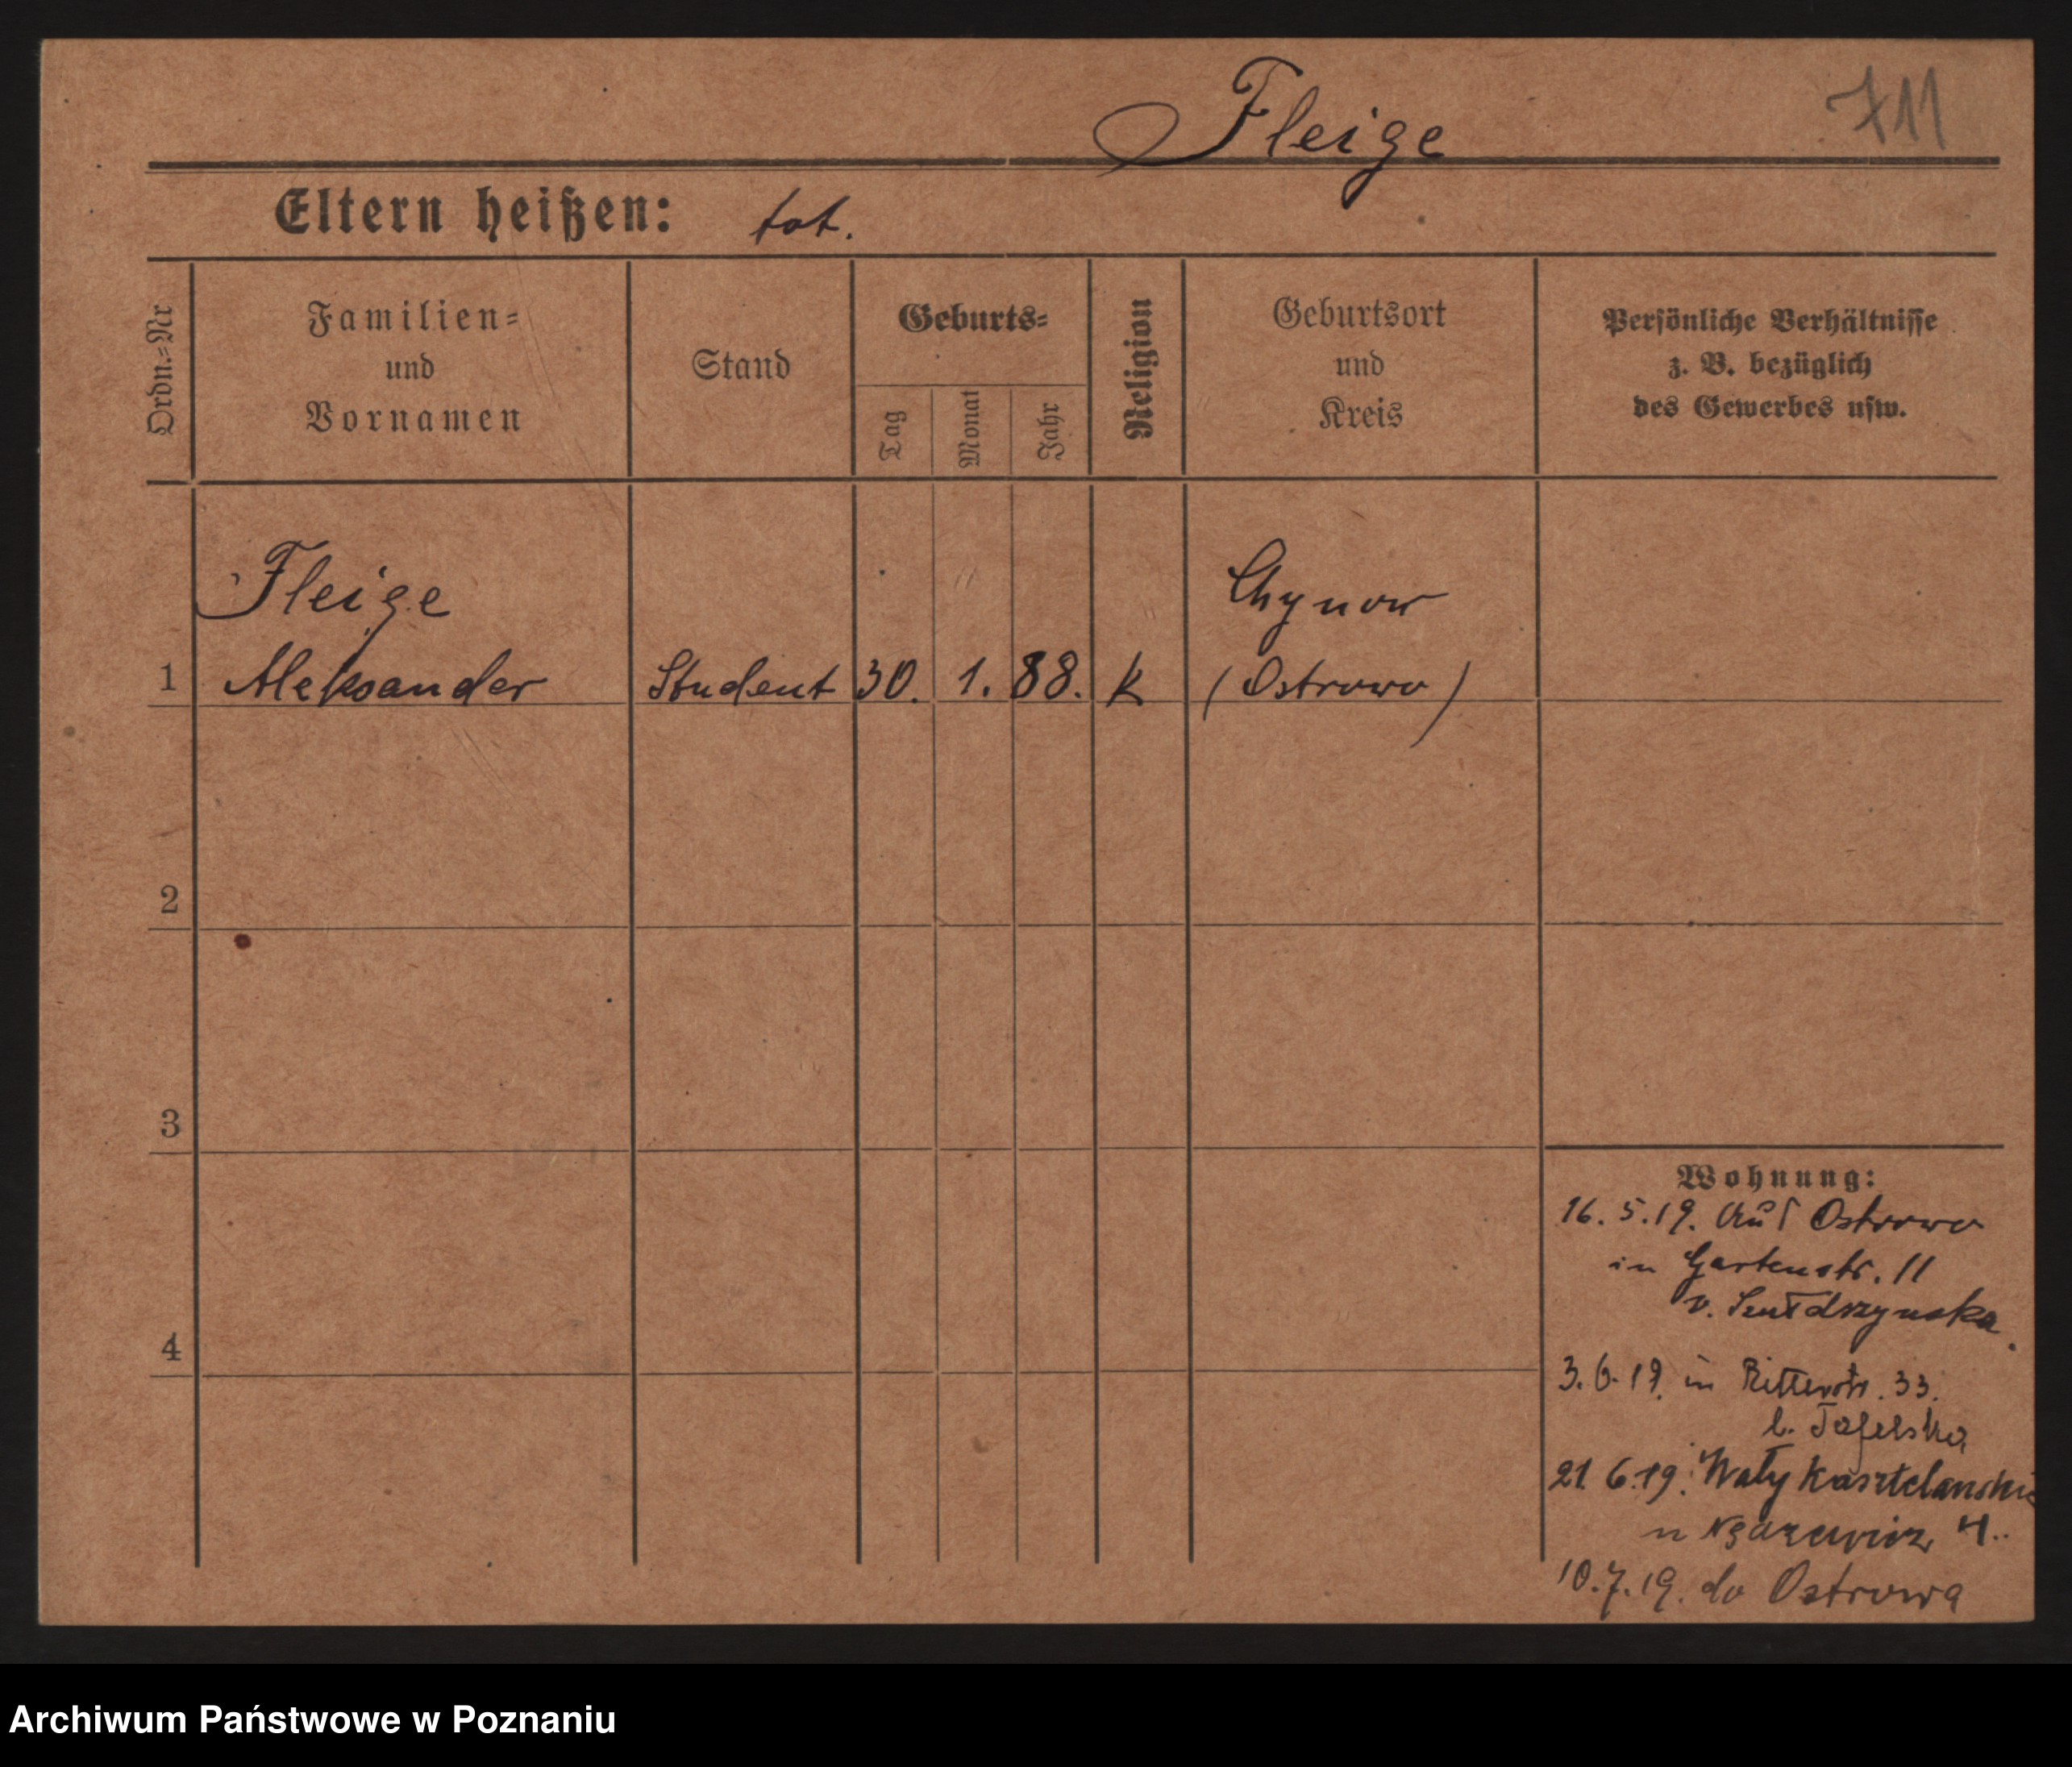 Fleige
711
Eltern heißen: tot.
Ordn.=Nr
Familien=
und
Vornamen
Stand
Geburts=
Tag
Monat
Jahr
Religion
Geburtsort
und
Kreis
Persönliche Verhältnisse
z. B. bezüglich
des Gewerbes usw.
Fleige
Chynow
1 Aleksander Student 30. 1. 88. k (Ostrowo)
2
3
4
Wohnung:
16. 5. 19. Ostrowo
in Gartenstr. 11
v.
3. 6. 19. in Ritterstr. 33.
b. Tafelska
21. 6. 19. Wały Kasztelańskie
4..
10. 7. 19. do Ostrowa
Archiwum Państwowe w Poznaniu